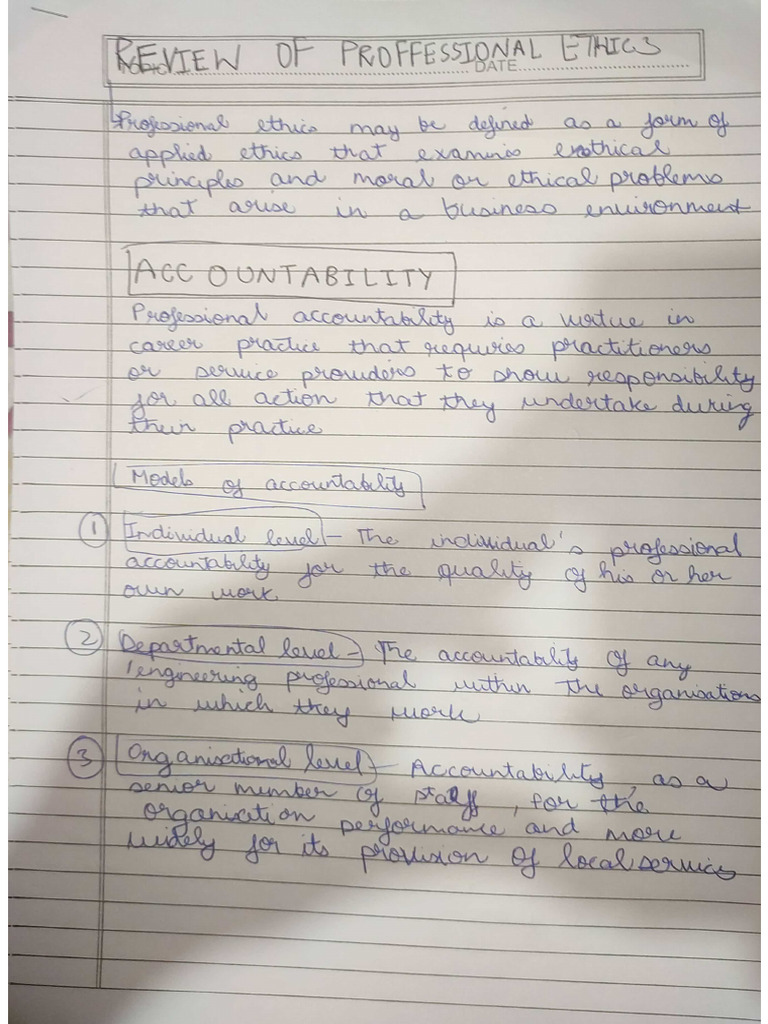 REVIEW OF PROFFESSIONAL ETHICS
DATE
Professional ethics may be defined as a form of
applied ethics that examinis enothical
principles and moral or ethical problems
that arise in a business environment
ACCOUNTABILITY
Professional accountability is a virtue in
career practice that requries practitioners
or service providers to show responsibility
for all action that they undertake during
their practice
Models of accountability
1 Individual level - The individual's professional
accountability for the quality of his or her
own work.
2 Departmental level - The accountability of any
engineering professional within the organisations
in which they work
3 Organisational level - Accountability, as a
senior member of staff, for the
organisation performance and more
widely for its provision of local services